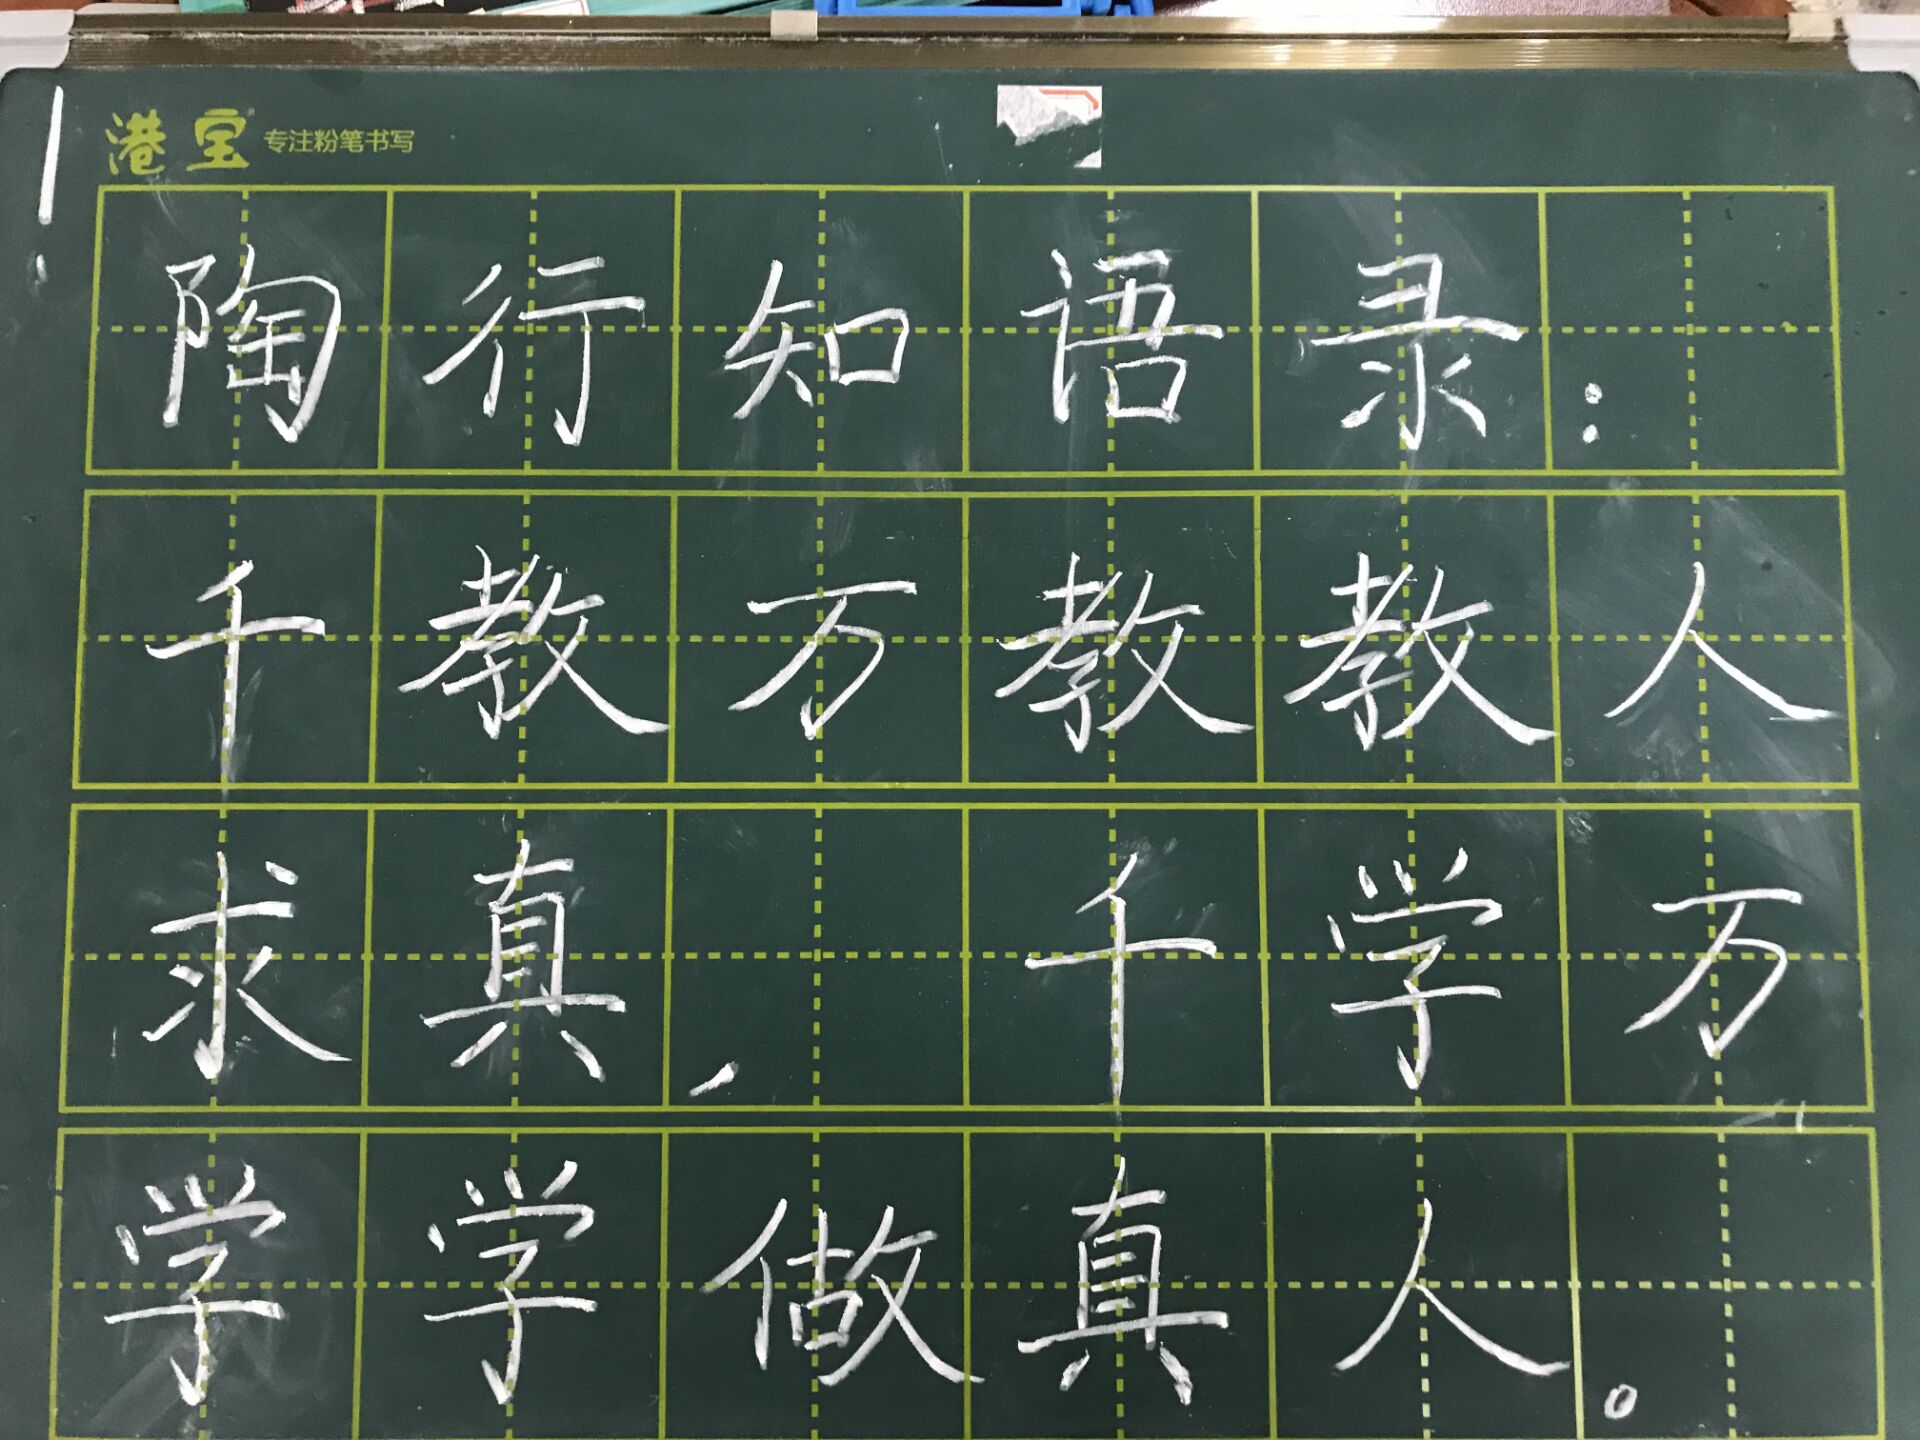 港宝 专注粉笔书写
陶行知语录：
千教万教教人
求真，千学万
学学做真人。